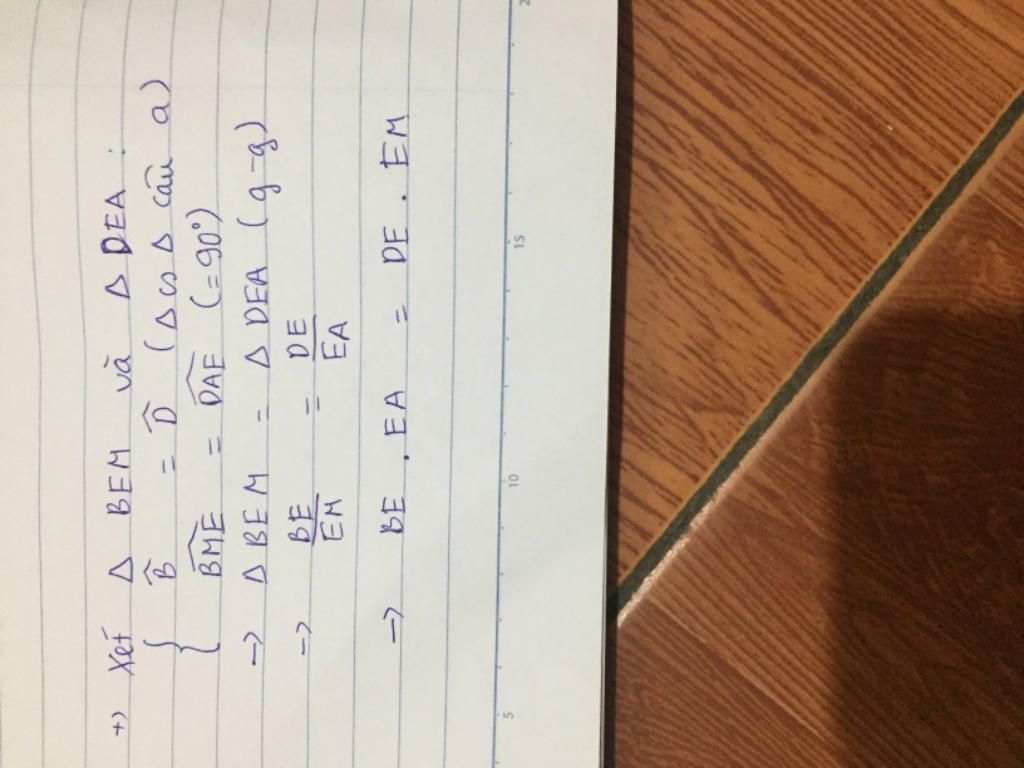 +) Xét Δ BEM và Δ DEA :
{ B̂ = D̂ (Δ cs Δ câu a)
BME = DAE (= 90°)
→ Δ BEM = Δ DEA (g-g)
→ BE/EM = DE/EA
→ BE . EA = DE . EM
5 10 15 2